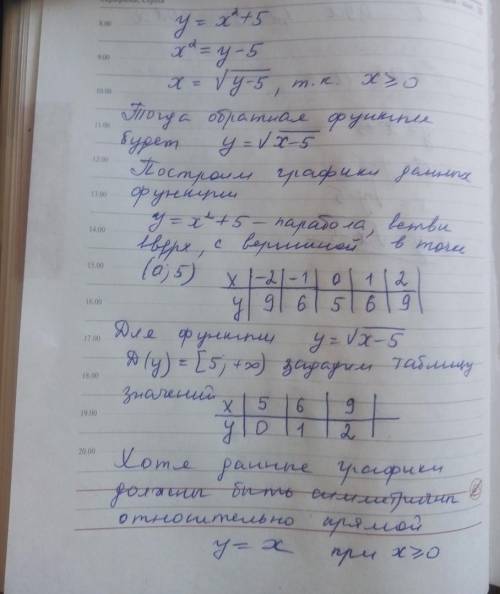 y = x² + 5
8.00
x² = y - 5
9.00
x = √(y-5), т.к. x ≥ 0
10.00
Тогда обратная функции
11.00
будет y = √(x-5)
12.00
Построим графики данных
13.00
функции
y = x² + 5 - парабола, ветви
14.00
вверх, с вершиной в точк
15.00
(0; 5) x | -2 | -1 | 0 | 1 | 2
16.00
y | 9 | 6 | 5 | 6 | 9
17.00
Для функции y = √(x-5)
D(y) = [5; +∞) зададим таблицу
18.00
значений
x | 5 | 6 | 9
19.00
y | 0 | 1 | 2
20.00
Хотя данные графики
должны быть симметричны
относительно прямой
y = x при x ≥ 0